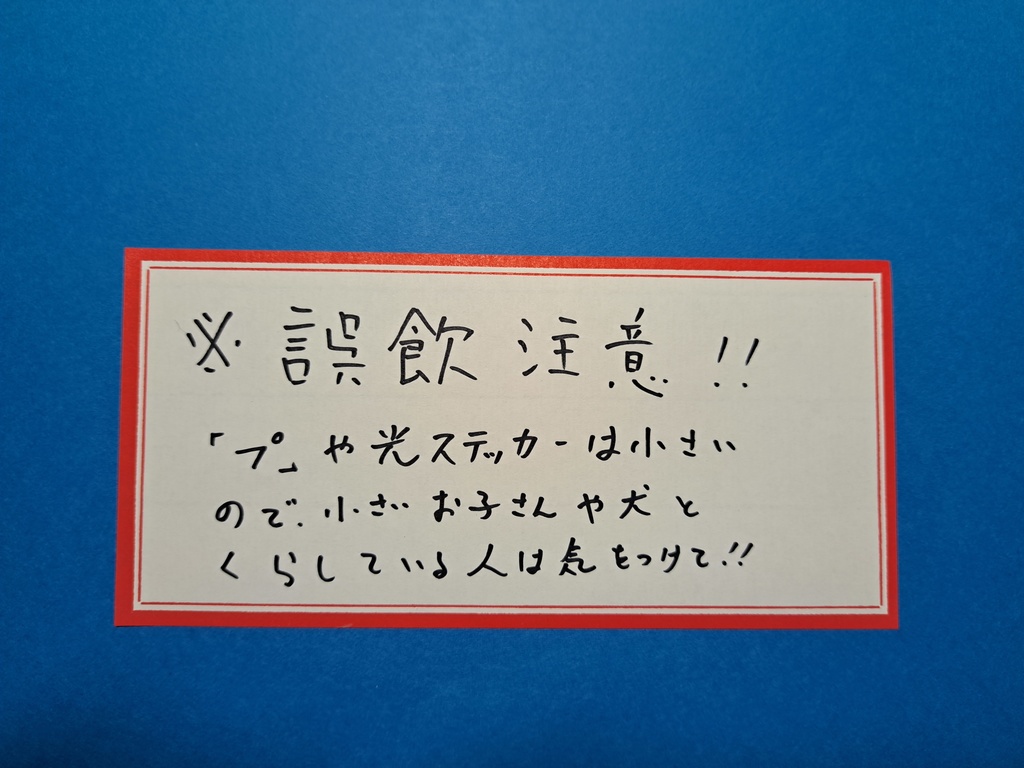 ※ 誤飲注意!!
「プ」や光ステッカーは小さい
ので、小さいお子さんや犬と
くらしている人は気をつけて!!